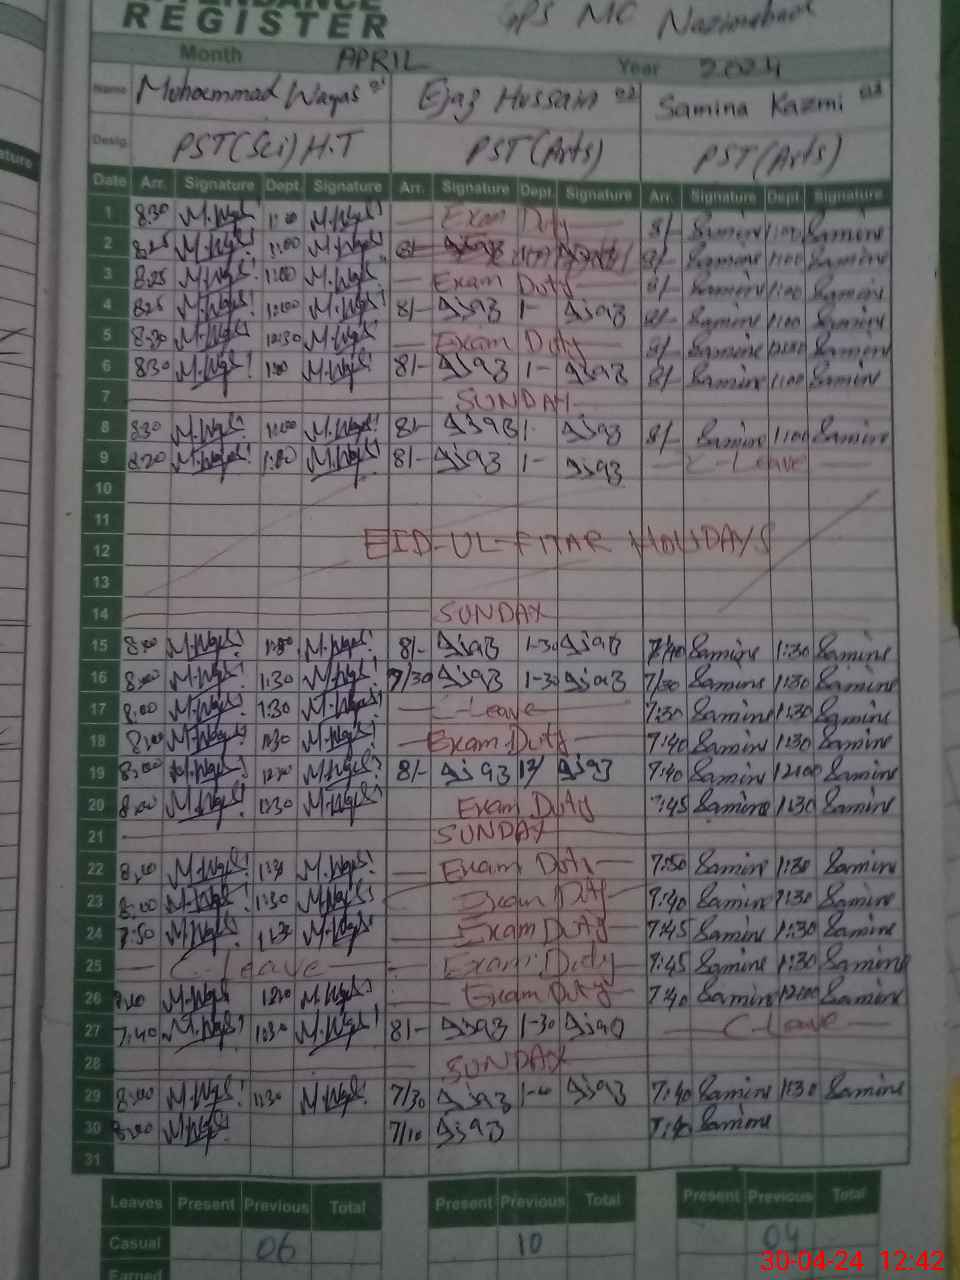 REGISTER GPS MC
Month APRIL Year 2024
Name Mohammad Waqas Ejaz Hussain Samina Kazmi
Desig. PST(Sci) H.T PST(Arts) PST(Arts)
Date Arr. Signature Dept. Signature Arr. Signature Dept. Signature Arr. Signature Dept. Signature
1 8:30 M.Wqs! M.Wqs! Exam Duty 8/- Samine 1:00 Samine
2 8:25 M.Wqs! 1:00 M.Wqs! 8/- Samine 1:00 Samine
3 8:25 M.Wqs! 1:00 M.Wqs! Exam Duty 8/- Samine 1:00 Samine
4 8:25 M.Wqs! M.Wqs! 8/- Aijaz 1- Aijaz 8/- Samine 1:00 Samine
5 8:30 M.Wqs! 12:30 M.Wqs! Exam Duty 8/- Samine Samine
6 8:30 M.Wqs! 1:00 M.Wqs! 8/- Aijaz 1- Aijaz 8/- Samine 1:00 Samine
7 SUNDAY
8 8:30 M.Wqs! M.Wqs! 8/- Aijaz 1- Aijaz 8/- Samine 1:00 Samine
9 8:20 M.Wqs! 1:00 M.Wqs! 8/- Aijaz 1- Aijaz C-Leave
10
11
12 EID-UL-FITAR HOLIDAYS
13
14 SUNDAY
15 8:00 M.Wqs! M.Wqs! 8/- Aijaz 1-30 Aijaz 7:40 Samine 1:30 Samine
16 8:00 M.Wqs! 1:30 M.Wqs! 7/30 Aijaz 1-30 Aijaz 7/30 Samine 1:30 Samine
17 8:00 M.Wqs! 1:30 M.Wqs! C-Leave 7:30 Samine 1:30 Samine
18 8:00 M.Wqs! 1:30 M.Wqs! Exam Duty 7:40 Samine 1:30 Samine
19 8:00 M.Wqs! M.Wqs! 8/- Aijaz 12/ Aijaz 7:40 Samine 12:00 Samine
20 8:00 M.Wqs! 1:30 M.Wqs! Exam Duty 7:45 Samine 1:30 Samine
21 SUNDAY
22 8:00 M.Wqs! 1:30 M.Wqs! Exam Duty 7:50 Samine 1:30 Samine
23 8:00 M.Wqs! 1:30 M.Wqs! Exam Duty 7:40 Samine 1:30 Samine
24 7:50 M.Wqs! 1:30 M.Wqs! Exam Duty 7:45 Samine 1:30 Samine
25 C-Leave Exam Duty 7:45 Samine 1:30 Samine
26 M.Wqs M.Wqs! Exam Duty 7:40 Samine 12:00 Samine
27 7:40 M.Wqs! 1:30 M.Wqs! 8/- Aijaz 1-30 Aijaz C-Leave
28 SUNDAY
29 8:00 M.Wqs! 1:30 M.Wqs! 7/30 Aijaz Aijaz 7:40 Samine 1:30 Samine
30 8:00 M.Wqs! 7/10 Aijaz 7:40 Samine
31
Leaves Present Previous Total Present Previous Total Present Previous Total
Casual 06 10 04
Earned
30-04-24 12:42